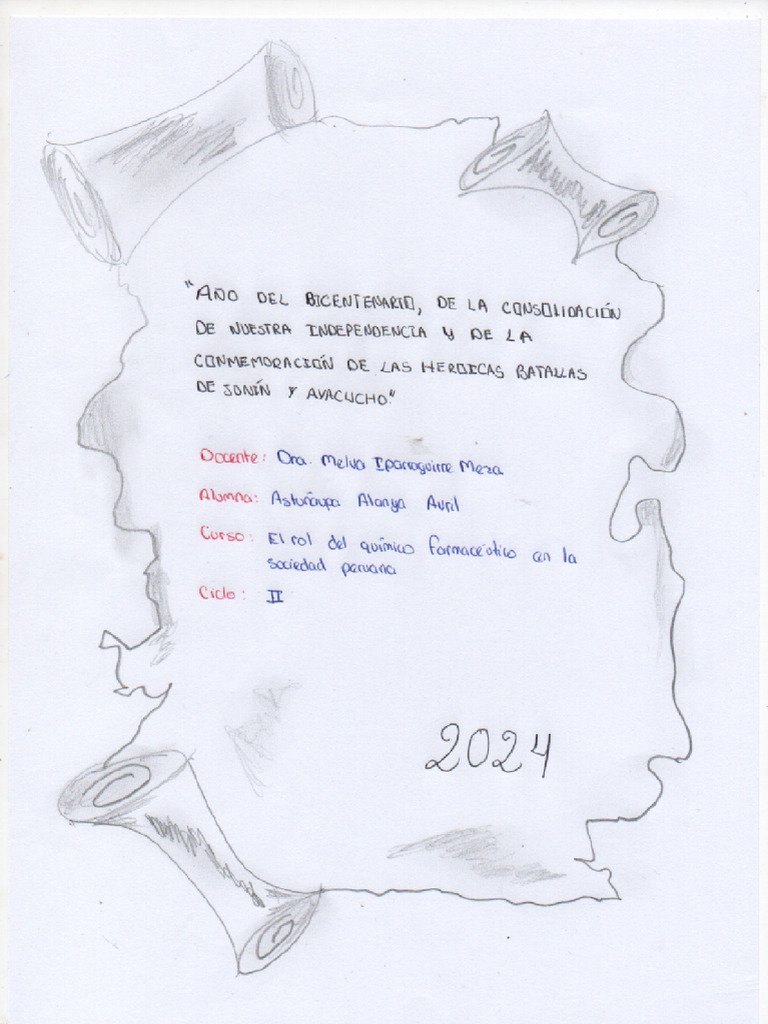 "AÑO DEL BICENTENARIO, DE LA CONSOLIDACIÓN
DE NUESTRA INDEPENDENCIA Y DE LA
CONMEMORACIÓN DE LAS HEROICAS BATALLAS
DE JUNÍN Y AYACUCHO"
Docente: Dra. Melva Iparraguirre Meza
Alumna: Astuñaupa Alanya Avril
Curso: El rol del químico farmacéutico en la
sociedad peruana
Ciclo: II
2024